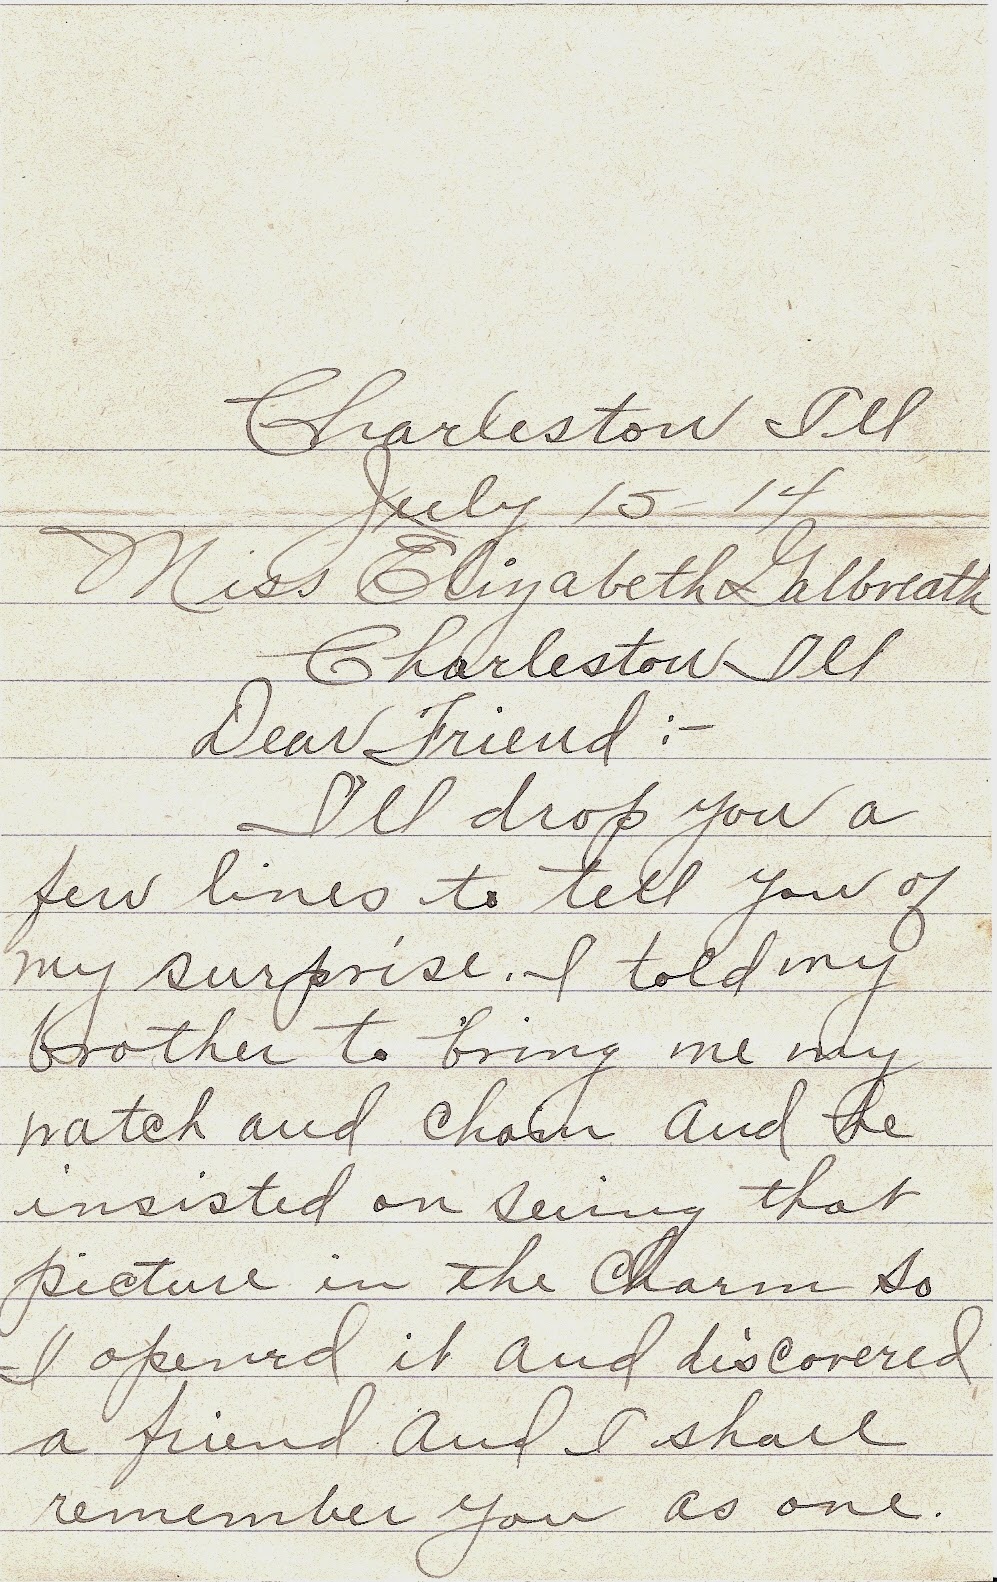 Charleston Ill
July 15-14
Miss Elizabeth Galbreath
Charleston Ill
Dear Friend :-
I'll drop you a
few lines to tell you of
my surprise. I told my
brother to bring me my
watch and chain and he
insisted on seeing that
picture in the charm so
I opened it and discovered
a friend and I shall
remember you as one.